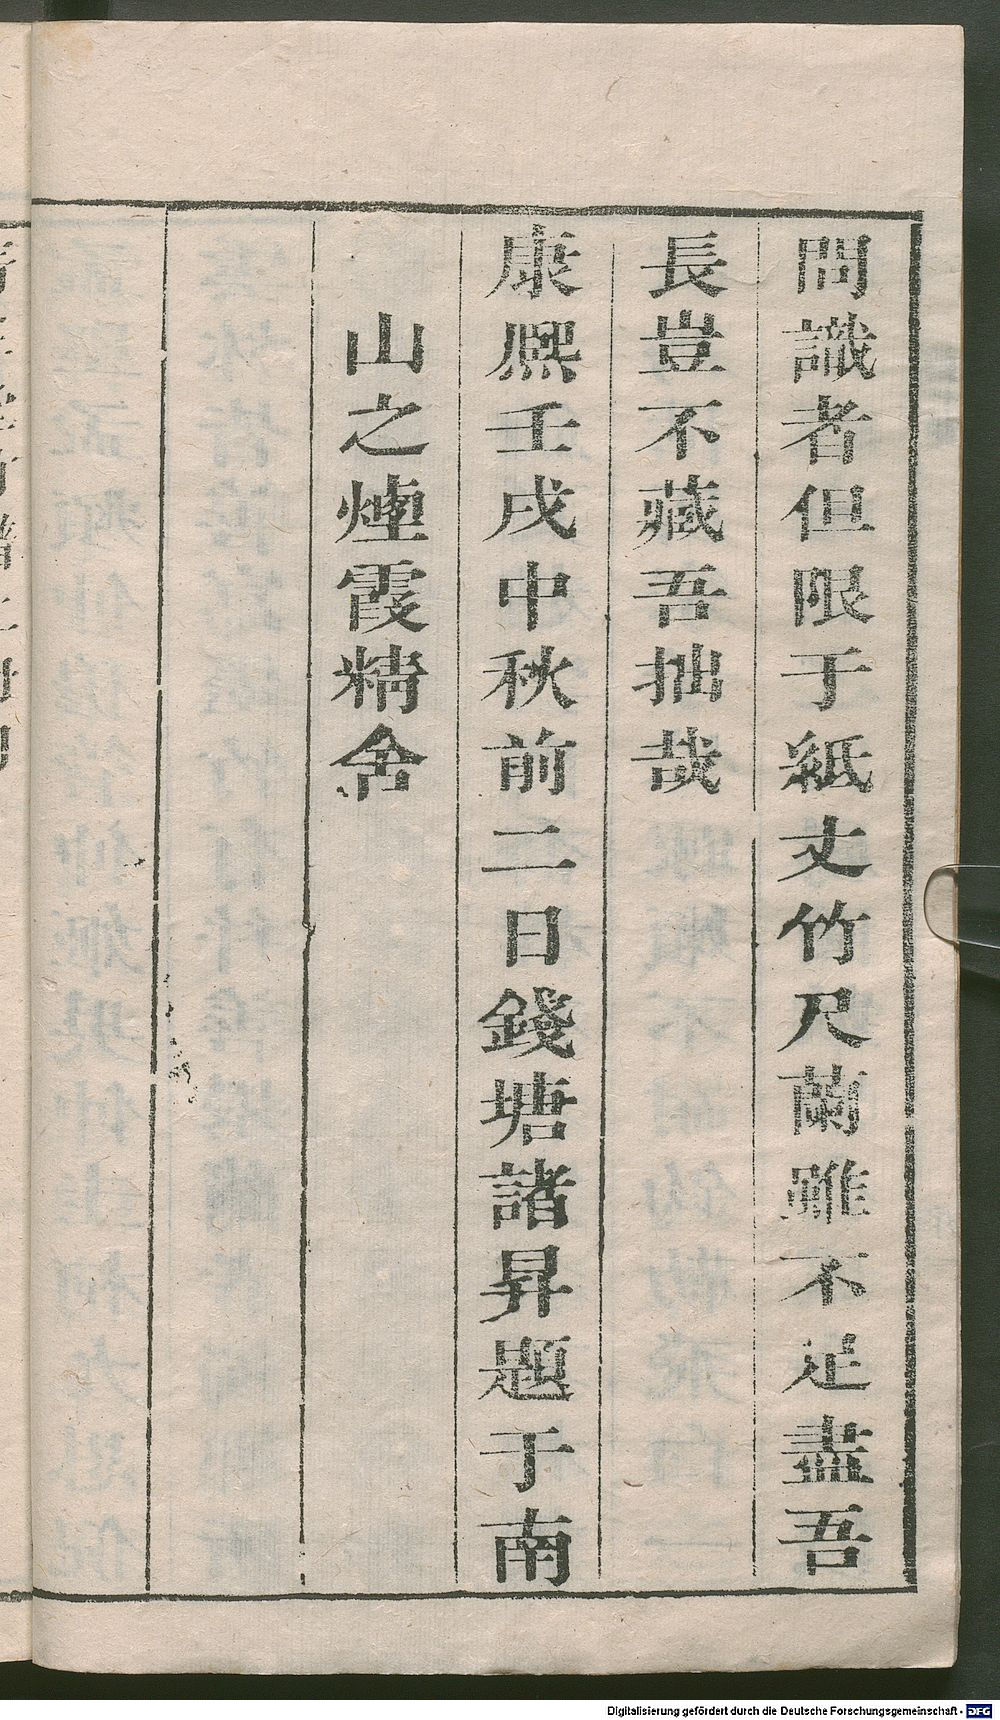 問識者但限于紙丈竹尺蘭雖不足盡吾
長豈不藏吾拙哉
康熙壬戌中秋前二日錢塘諸昇題于南
山之煙霞精舍
Digitalisierung gefördert durch die Deutsche Forschungsgemeinschaft - DFG